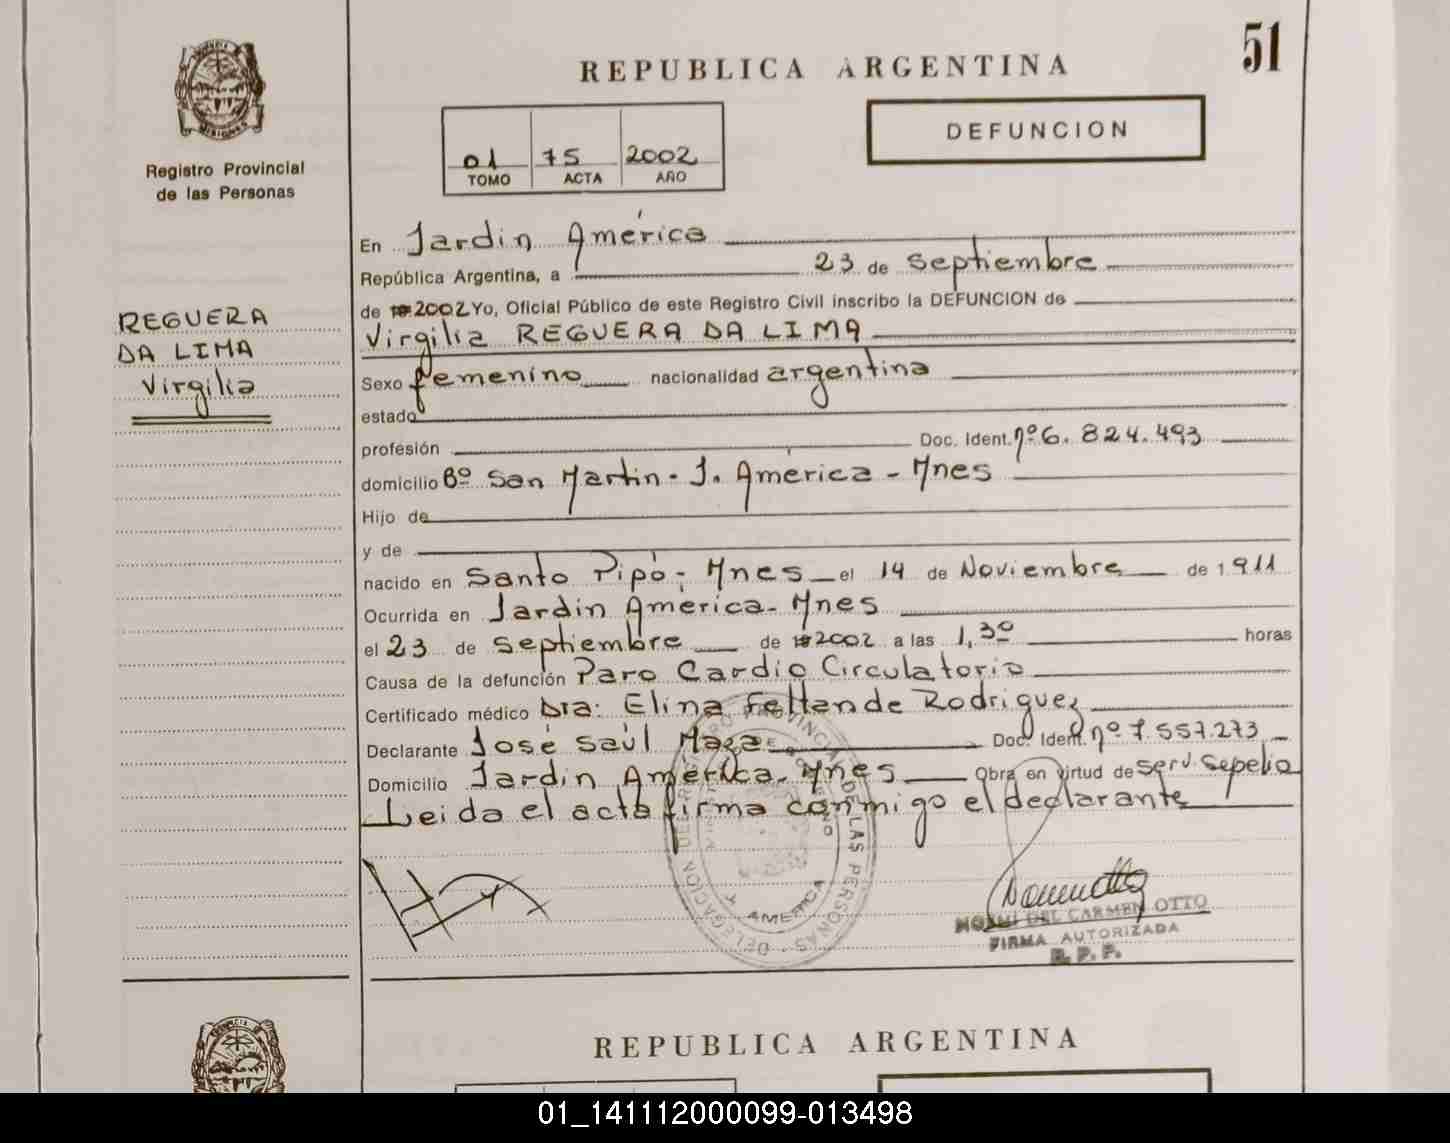 51
REPUBLICA ARGENTINA
DEFUNCION
MISIONES
Registro Provincial
de las Personas
01 75 2002
TOMO ACTA AÑO
En Jardin América
República Argentina, a 23 de Septiembre
de 2002 Yo, Oficial Público de este Registro Civil inscribo la DEFUNCION de
Virgilia REGUERA DA LIMA
REGUERA
DA LIMA
Virgilia
Sexo femenino nacionalidad argentina
estado
profesión Doc. Ident. nº 6.824.493
domicilio Bº San Martin - J. América - Mnes
Hijo de
y de
nacido en Santo Pipó - Mnes el 14 de Noviembre de 1.911
Ocurrida en Jardin América - Mnes
el 23 de Septiembre de 2002 a las 1,30 horas
Causa de la defunción Paro Cardio Circulatorio
Certificado médico Dra: Elina de Rodriguez
Declarante José Saúl Maza Doc. Ident. nº 7.557.273
Domicilio Jardin América - Mnes Obra en virtud de serv. Sepelio
Leida el acta firma conmigo el declarante
DELEGACION DEL REGISTRO PROVINCIAL DE LAS PERSONAS
AMERICA
NOEMI DEL CARMEN OTTO
FIRMA AUTORIZADA
R. P. P.
REPUBLICA ARGENTINA
01_141112000099-013498